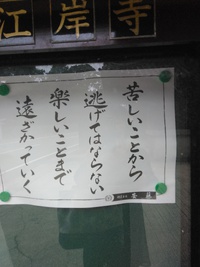 江岸寺
苦しいことから
逃げてはならない
楽しいことまで
遠ざかっていく